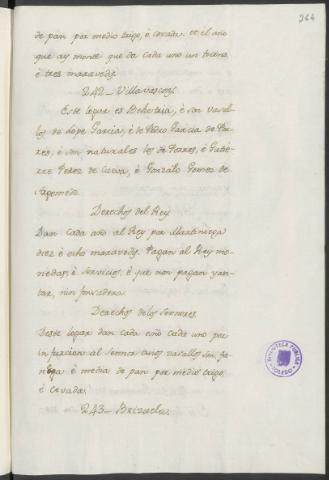 264
de pan por medio trigo, è cevada. et el año
que ay monte que da cada uno un tocino
è tres maravedis.
242 - Villavascones
Este logar es Behetria, è son vasa-
llos de Lope Garcia, è de Pedro Garcia de Por-
res, è son naturales los de Porres, è Gutie-
rre Perez de Cueva, è Gonzalo Gomez de
Derechos del Rey
Dan cada año al Rey por Martiniega
diez è ocho maravedis. Pagan al Rey mo-
nedas, è servicios, è que non pagan yan-
tar, nin fonsadera.
Derechos delos Señores
Deste logar dan cada año cada uno por
infurcion al sennor cuios vasallos son fa-
nega è media de pan por medio trigo,
è cevada.
243 - Brizuela
BIBLIOTECA PUBLICA
TOLEDO